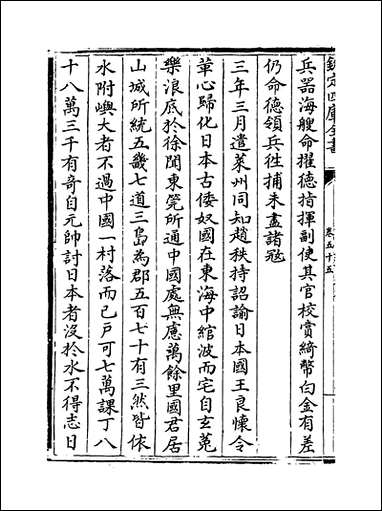 欽定四庫全書
卷五十五
兵器海艘命擢德指揮副使其官校賞綺幣白金有差
仍命德領兵徃捕未盡諸冦
三年三月遣萊州同知趙秩持詔諭日本國王良懷令
革心歸化日本古倭奴國在東海中綰波而宅自玄菟
樂浪底於徐聞東筦所通中國處無慮萬餘里國君居
山城所統五畿七道三島為郡五百七十有三然皆依
水附嶼大者不過中國一村落而已戶可七萬課丁八
十八萬三千有奇自元帥討日本者沒於水不得志日